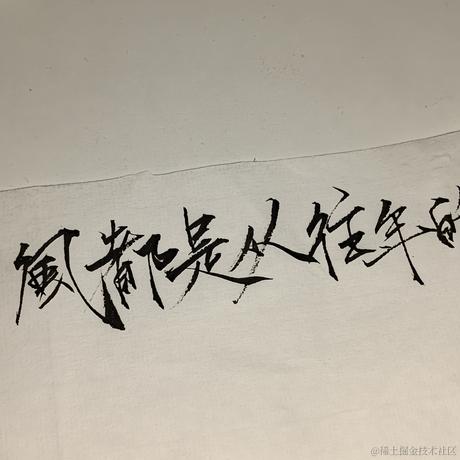 風都是从往年的
@稀土掘金技术社区